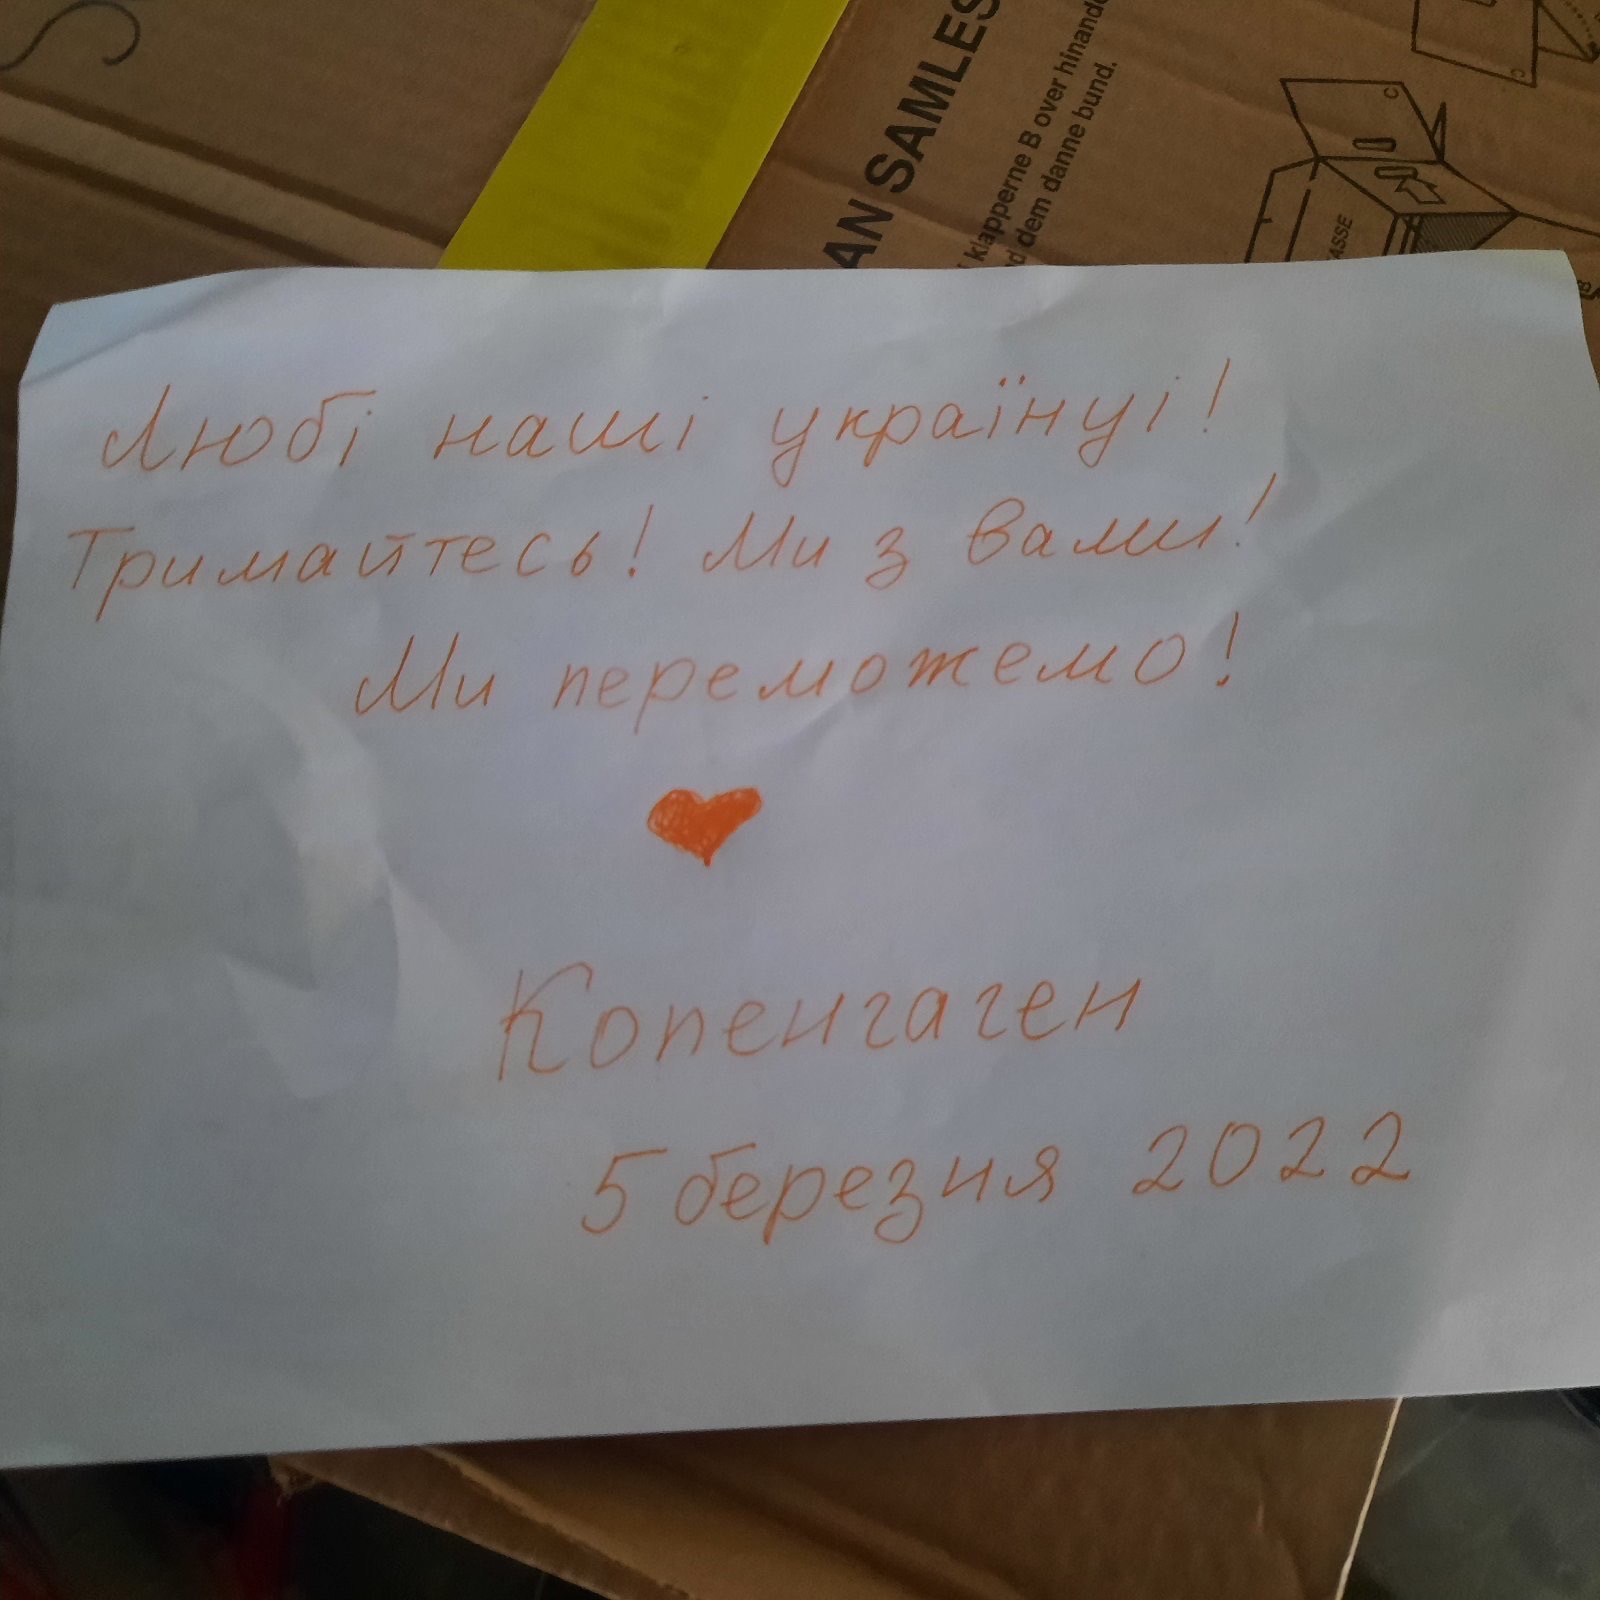 AN SAMLES
klapperne B over hinand
dem danne bund.
C
C
ASSE
Любі наші українці!
Тримайтесь! Ми з вами!
Ми переможемо!
Копенгаген
5 березня 2022